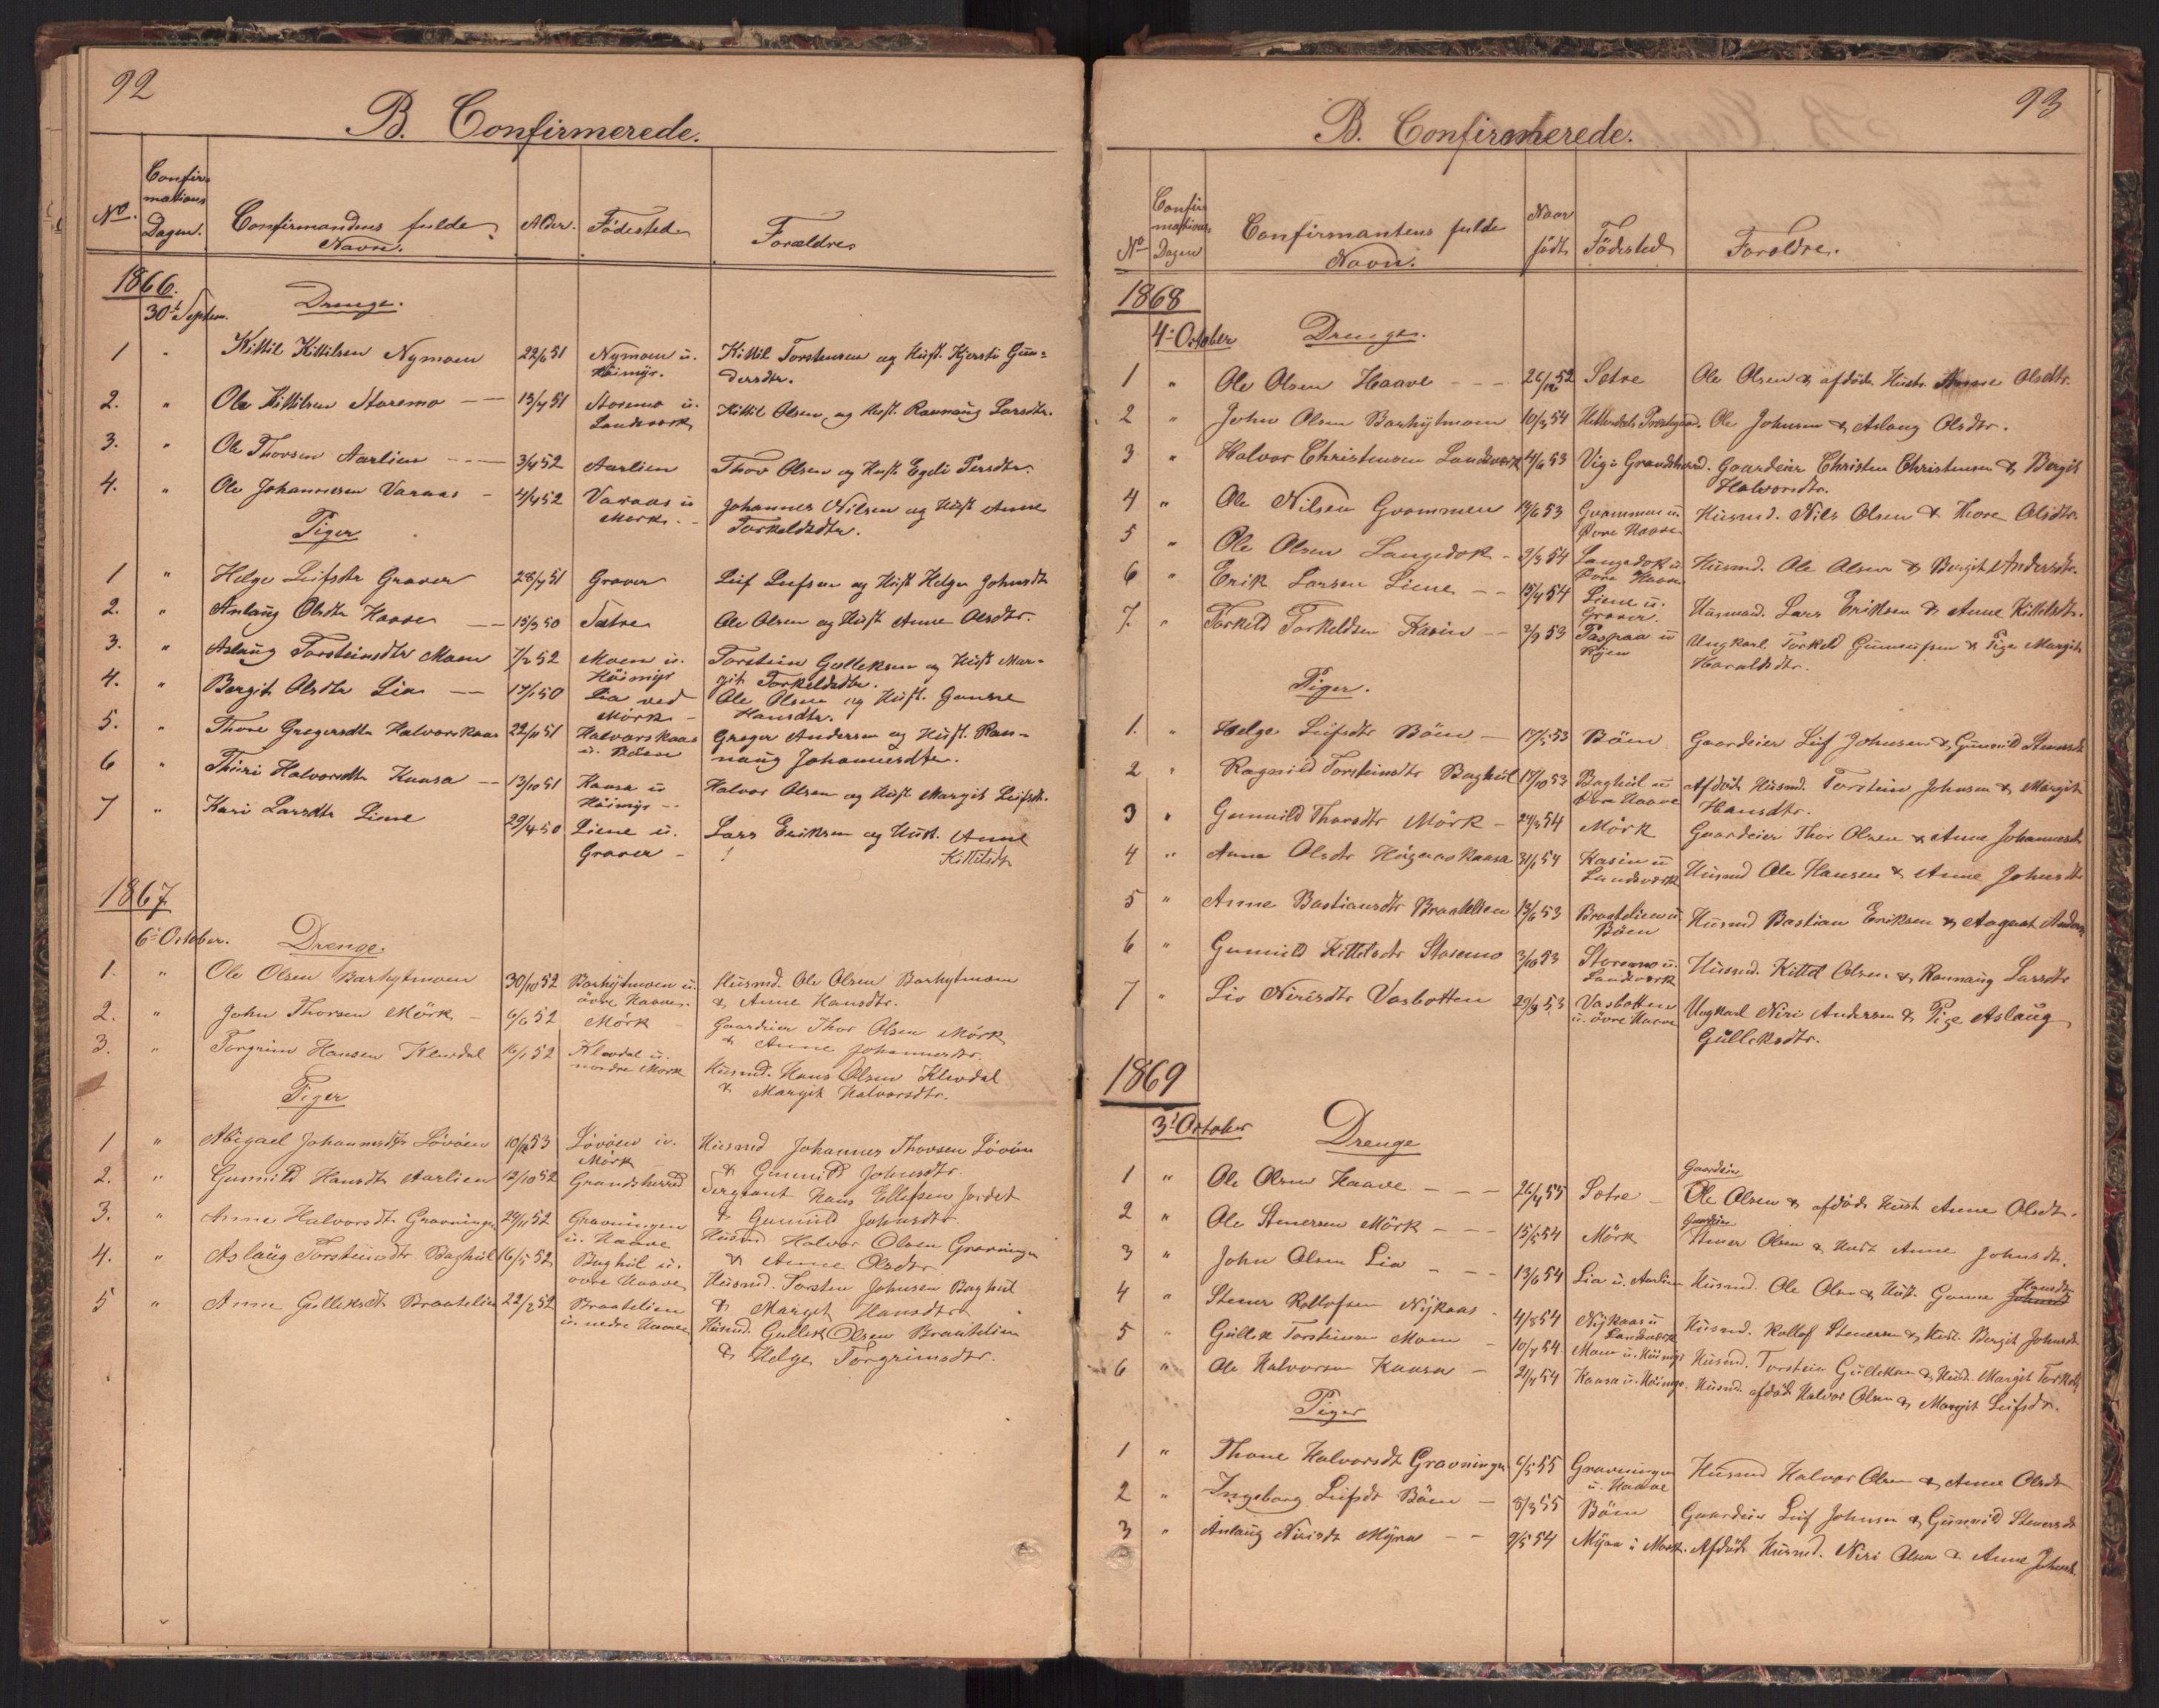 92
B. Confirmerede.
No. Confir- mations Dagen. Confirmandens fulde Navn. Alder. Födested Forældre
1866.
30te Septem. Drenge.
1 " Kittil Kittilsen Nymoen 22/6 51 Nymoen u. Kittil Torstensen og Hust. Kjersti Gun-
Höimyr. dersdtr.
2. " Ole Kittilsen Storemo 13/7 51 Storemo u. Kittil Olsen og Hust. Rannaug Larsdtr.
Landsverk
3. " Ole Thorsen Aarlien 3/4 52 Aarlien Thor Olsen og Hust. Egeli Persdtr.
4. " Ole Johannesen Varaas 4/4 52 Varaas u Johannes Nilsen og Hust Anne
Mørk. Torkeldsdtr.
Piger
1 " Helge Leifsdtr Graver 28/7 51 Graver Leif Leifsen og Hust Helge Johnsdtr
2. " Anlaug Olsdtr Haave 15/3 50 Sætre Ole Olsen og Hust Anne Olsdtr.
3. " Aslaug Torsteinsdtr Moen 7/2 52 Moen u. Torstein Gulleksen og Hust Mar-
Höimyr git Torkeldsdtr.
4. " Bergit Olsdtr Lia 17/1 50 Lia ved Ole Olsen og Hust. Gunne
Mörk Hansdtr.
5. " Thone Gregersdtr Halvorskaas 22/10 51 Halvorskaas Greger Andersen og Hust. Ran-
u. Böen naug Johannesdtr.
6 " Thuri Halvorsdtr Kaasa 13/10 51 Kaasa u Halvor Olsen og Hust Margit Leifsdtr.
Höimyr
7 " Kari Larsdtr Liene 29/4 50 Liene u. Lars Eriksen og Hust. Anne
Graver Kittilsdtr
1867.
6te October. Drenge.
1. " Ole Olsen Barhytmoen 30/10 52 Barhytmoen u. Husmd. Ole Olsen Barhytmoen
övre Haave. & Anne Hansdtr.
2. " John Thorsen Mörk 6/6 52 Mörk Gaardeier Thor Olsen Mörk
& Anne Johannesdtr.
3. " Torgrim Hansen Klevdal 16/1 52 Klevdal u. Husmd. Hans Olsen Klevdal
nordre Mork & Margit Halvorsdtr.
Piger
1 " Abigael Johannesdtr Lövöen 10/12 53 Lövöen u. Husmd Johannes Thorsen Lövöen
Mörk & Gunnild Johnsdtr.
2. " Gunnild Hansdtr Aarlien 12/10 52 Grandsherred Sergeant Hans Ellefsen Jordet
& Gunnild Johnsdtr.
3. " Anne Halvorsdtr Gravningen 29/11 52 Gravningen Husmd Halvor Olsen Gravningen
u. Haave & Anne Olsdtr.
4. " Aslaug Torsteinsdtr Baghul 16/5 52 Baghul u. Husmd. Torsten Johnsen Baghul
övre Haave & Margit Hansdtr.
5 " Anne Gulleksdt Braatelien 22/2 52 Braatelien Husmd. Gullek Olsen Braatelien
u. nedre Haave & Helge Torgrimsdtr.
93
B. Confirmerede.
No Confir- mations Dagen Confirmantens fulde Navn. Naar födt Födested Foreldre.
1868
4de October Drenge.
1 " Ole Olsen Haave 26/12 52 Setre Ole Olsen & afdöde Hustr. Anne Olsdtr.
2 " John Olsen Barhytmoen 10/3 54 Hitterdals Prestegaard. Ole Johnsen & Aslaug Olsdtr.
3 " Halvor Christensen Landsverk 4/6 53 Vig i Grandsherred. Gaardeier Christen Christensen & Bergit
Halvorsdtr.
4 " Ole Nilsen Grommen 19/6 53 Grommen u Husmd. Nils Olsen & Thore Olsdtr.
Övre Haave
5 " Ole Olsen Langedok 2/3 54 Langedok u Husmd. Ole Olsen & Bergit Andersdtr.
Övre Haave
6 " Erik Larsen Liene 15/4 54 Liene u. Husmand. Lars Eriksen & Anne Kittilsdtr.
Graver.
7. " Torkeld Torkeldsen Kasin 2/9 53 Taspaa u Ungkarl Torkeld Gunnufsen & Pige Margit
Ryen Haraldsdtr.
Piger.
1. " Helge Leifsdtr Böen 17/5 53 Böen Gaardeier Leif Johnsen & Gunnild Stenersdtr
2 " Ragnild Torsteinsdtr Baghul 17/10 53 Baghul u Afdöde Husmd. Torstein Johnsen & Margit
Övre Haave Hansdtr.
3 " Gunnild Thorsdtr Mörk 24/3 54 Mörk Gaardeier Thor Olsen & Anne Johannesdtr
4 " Anne Olsdtr Högenskaasa 31/1 54 Kasin u Husmd Ole Hansen & Anne Johnsdtr
Landsverk
5 " Anne Bastiansdtr Braatelien 13/6 53 Braatelien u Husmd Bastian Eriksen & Aagaat Anders
Böen
6 " Gunnild Kittilsdtr Storemo 3/10 53 Storemo u. Husmd. Kittil Olsen & Rannaug Larsdtr
Landsverk
7 " Liv Nirisdtr Vasbotten 29/9 53 Vasbotten Ungkarl Niri Andersen & Pige Aslaug
u. övre Haave Gulleksdtr.
1869
3die October Drenge
1 " Ole Olsen Haave 26/4 55 Setre Gaardeier Ole Olsen & afdöde Hust Anne Olsdt.
2 " Ole Stenersen Mörk 15/5 54 Mörk Gaardeier Stener Olsen & Hust Anne Johnsdt.
3 " John Olsen Lia 13/6 54 Lia u. Aarlien Husmd. Ole Olsen & Hust. Gunne Johnsdt Hansdtr
4 " Stener Rollofsen Nykaas 4/8 54 Nykaas u Husmd. Rollof Stenersen & Hust. Bergit Johnsdt.
Landsverk
5 " Gullek Torsteinsen Moen 10/7 54 Moen u. Höimyr Husmd. Torstein Gulleksen & Hust. Margit Torkelsd
6 " Ole Halvorsen Kaasa 21/4 54 Kaasa u. Höimyr. Husmd. afdöde Halvor Olsen & Margit Leifsdtr.
Piger
1 " Thone Halvorsdt Gravningen 6/5 55 Gravningen Husmd Halvor Olsen & Anne Olsdt
u. Haave
2 " Ingeborg Leifsdt Böen 8/3 55 Böen Gaardeier Leif Johnsen & Gunnild Stenersdt
3 " Anlaug Nirisdt Myra 9/5 54 Myra u Mørk. Afdöde Husmd. Niri Olsen & Anne Johnsd